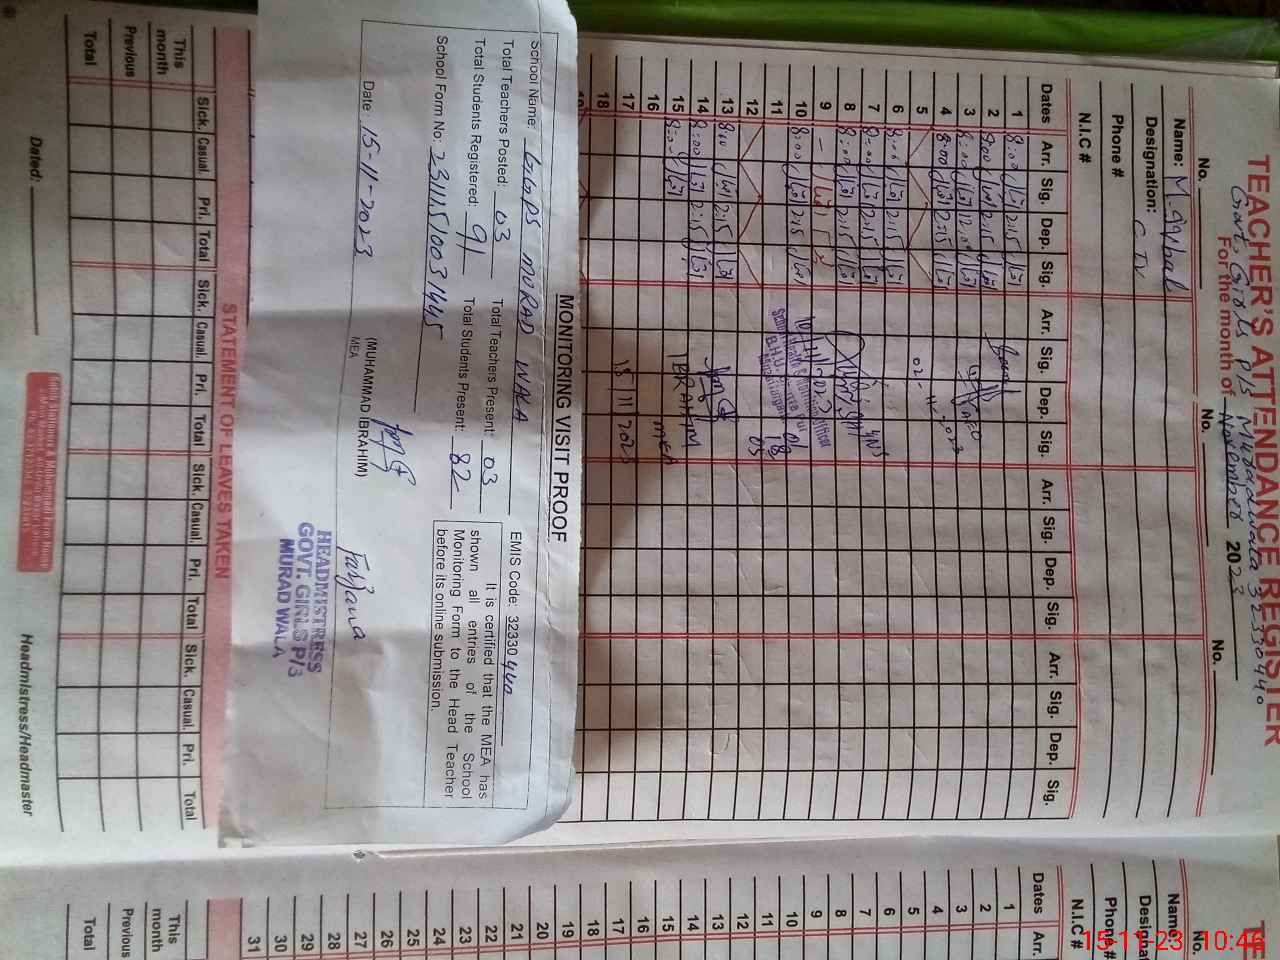 TEACHER'S ATTENDANCE REGISTER
Govt. Girls P/S Muradwala 32330440
For the month of November 2023
No.
No.
No.
Name: M. Iqbal
Designation:
Phone #
N.I.C #
Dates Arr. Sig. Dep. Sig. Arr. Sig. Dep. Sig. Arr. Sig. Dep. Sig. Arr. Sig. Dep. Sig.
1 8:00 2:15
2 8:00 2:15
3 8:00 12:00
4 8:00 2:15
5
6 8:00 2:15
7 8:00 2:15
8 8:00 2:15
9
10 8:00 2:15
11
12
13 8:00 2:15
14 8:00 2:15
15 8:00
16
17
18
19
AEO
02-11-2023
10-11-2023
IBRAHIM
MEA
15/11/2023
MONITORING VISIT PROOF
School Name: G.G.PS MORAD WALA EMIS Code: 32330440
Total Teachers Posted: 03 Total Teachers Present: 03
Total Students Registered: 91 Total Students Present: 82
School Form No: 23111510031445
It is certified that the MEA has
shown all entries of the School
Monitoring Form to the Head Teacher
before its online submission.
Date: 15-11-2023
(MUHAMMAD IBRAHIM)
MEA
Farjana
HEADMISTRESS
GOVT. GIRLS P/S
MURAD WALA
STATEMENT OF LEAVES TAKEN
Sick. Casual. Pri. Total Sick. Casual. Pri. Total Sick. Casual. Pri. Total Sick. Casual. Pri. Total
This month
Previous
Total
Dated:
Headmistress/Headmaster
No.
Name:
Phone #
N.I.C #
Dates Arr.
1
2
3
4
5
6
7
8
9
10
11
12
13
14
15
16
17
18
19
20
21
22
23
24
25
26
27
28
29
30
31
This month
Previous
Total
15-11-23 10:46